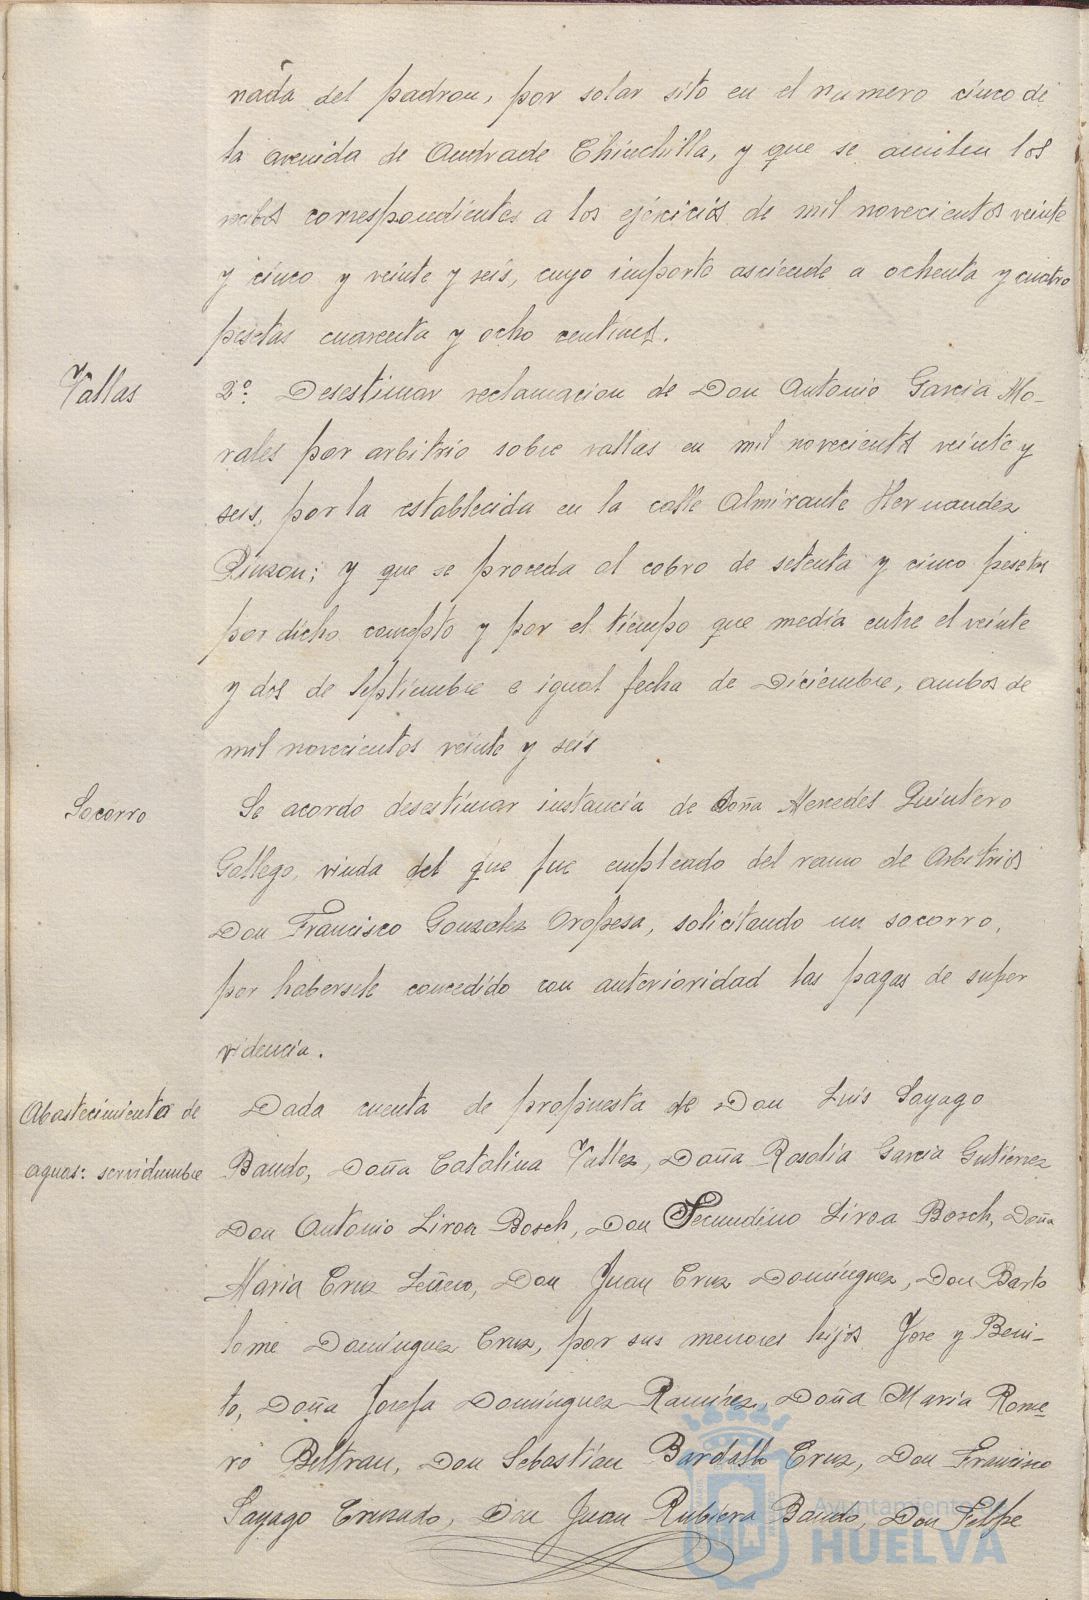 nada del padron, por solar sito en el numero cinco de
la avenida de Andrade Chinchilla, y que se anulen los
recibos correspondientes a los ejercicios de mil novecientos veinte
y cinco y veinte y seis, cuyo importe asciende a ochenta y cuatro
pesetas cuarenta y ocho centimos.
Vallas
2º. Desestimar reclamacion de Don Antonio Garcia Mo-
rales por arbitrio sobre vallas en mil novecientos veinte y
seis, por la establecida en la calle Almirante Hernandez
Pinzon; y que se proceda al cobro de setenta y cinco pesetas
por dicho concepto y por el tiempo que media entre el veinte
y dos de Septiembre e igual fecha de Diciembre, ambos de
mil novecientos veinte y seis
Socorro
Se acordo desestimar instancia de Doña Mercedes Quintero
Gallego, viuda del que fue empleado del ramo de Arbitrios
Don Francisco Gonzalez Oropesa, solicitando un socorro,
por habersele concedido con anterioridad las pagas de super
videncia.
Abastecimiento de
aguas: servidumbre
Dada cuenta de propuesta de Don Luis Sayago
Bando, Doña Catalina Vallez, Doña Rosalia Garcia Gutierrez
Don Antonio Liroa Bosch, Don Secundino Liroa Bosch, Doña
Maria Cruz Don Juan Cruz Dominguez, Don Barto
lome Dominguez Cruz, por sus menores hijos Jose y Beni-
to, Doña Josefa Dominguez Ramirez, Doña Maria Rome-
ro Beltran, Don Sebastian Bardallo Cruz, Don Francisco
Sayago Cruzado, Don Juan Rubiera Bando, Don Felipe
Ayuntamiento de
HUELVA